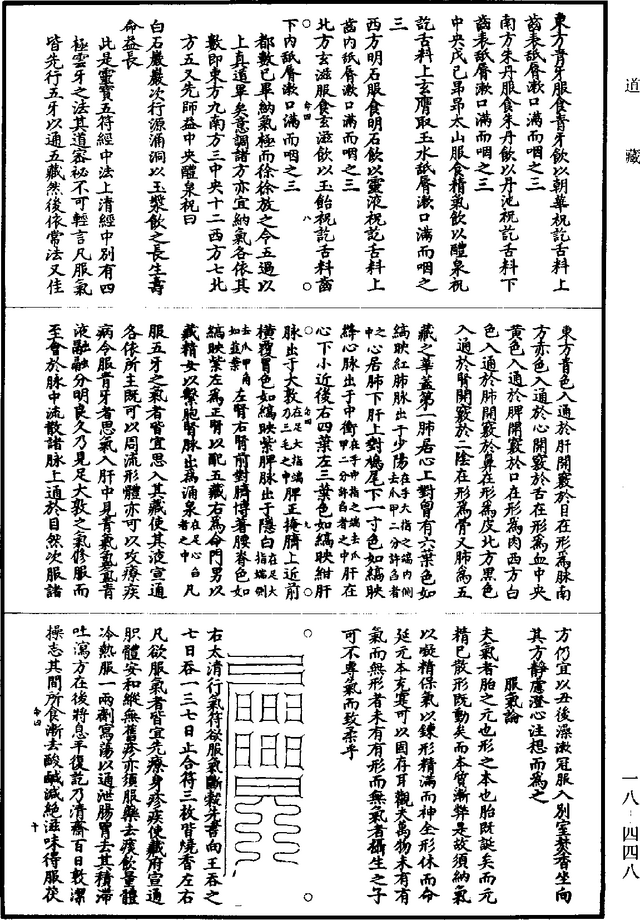 道藏
東方青牙服食青牙飲以朝華祝訖舌料上
齒表舐脣漱口滿而咽之三
南方朱丹服食朱丹飲以丹池祝訖舌料下
齒表舐脣漱口滿而咽之三
中央戊己昂昂太山服食精氣飲以醴泉祝
訖舌料上玄膺取玉水舐脣漱口滿而咽之
三
西方明石服食明石飲以靈液祝訖舌料上
齒內舐脣漱口滿而咽之三
北方玄滋服食玄滋飲以玉飴祝訖舌料齒
下內舐脣漱口滿而咽之三
都數已畢納氣極而徐徐放之令五過以
上真道畢矣意調諸方亦宜納氣各依其
數即東方九南方三中央十二西方七北
方五又先師益中央醴泉祝曰
白石巖巖次行源涌洞以玉漿飲之長生壽
命益長
此是靈寶五符經中法上清經中別有四
極雲牙之法其道密祕不可輕言凡服氣
皆先行五牙以通五藏然後依常法又佳
東方青色入通於肝開竅於目在形爲脉南
方赤色入通於心開竅於舌在形爲血中央
黃色入通於脾開竅於口在形爲肉西方白
色入通於肺開竅於鼻在形爲皮北方黑色
入通於腎開竅於二陰在形爲骨又肺爲五
藏之華蓋第一肺居心上對胷有六葉色如
縞映紅肺脉出於少陽在手大指之端內側去爪甲二分許陷者
之中心居肺下肝上對鳩尾下一寸色如縞映
絳心脉出于中衝在手中指之端去爪甲二分許陷者之中肝在
心下小近後右四葉左三葉色如縞映紺肝
脉出于大敦在足大指端及三毛之中脾正掩臍上近前
橫覆胃色如縞映紫脾脉出于隱白在足大指端側
去爪甲角如韭葉左腎右腎前對臍搏著腰脊色如
縞映紫左爲正腎以配五藏右爲命門男以
藏精女以繫胞腎脉出爲涌泉在足心者之中凡
服五牙之氣者皆宜思入其藏使其液宣通
各依所主既可以周流形體亦可以攻療疾
病令服青牙者思氣入肝中見青氣氳氳青
液融融分明良久乃見足大敦之氣修服而
至會於脉中流散諸脉上通於目然次服諸
方仍宜以丑後澡漱冠服入別室焚香坐向
其方靜慮澄心注想而爲之
服氣論
夫氣者胎之元也形之本也胎既誕矣而元
精已散形既動矣而本質漸弊是故須納氣
以凝精保氣以鍊形精滿而神全形休而命
延元本充實可以固存耳觀夫萬物未有有
氣而無形者未有有形而無氣者攝生之子
可不專氣而致柔乎
右太清行氣符欲服氣斷穀先書向王吞之
七日吞一三七日止合符三枚皆燒香左右
凡欲服氣者皆宜先療身疹疾使藏府宣通
肥體安和縱無舊疹亦須服藥去痰飲量體
冷熱服一兩劑寫蕩以通泄腸胃去其積滯
吐瀉方在後將息平復訖乃清齋百日敦潔
操志其間所食漸去酸鹹減絕滋味得服茯
一八·四四八